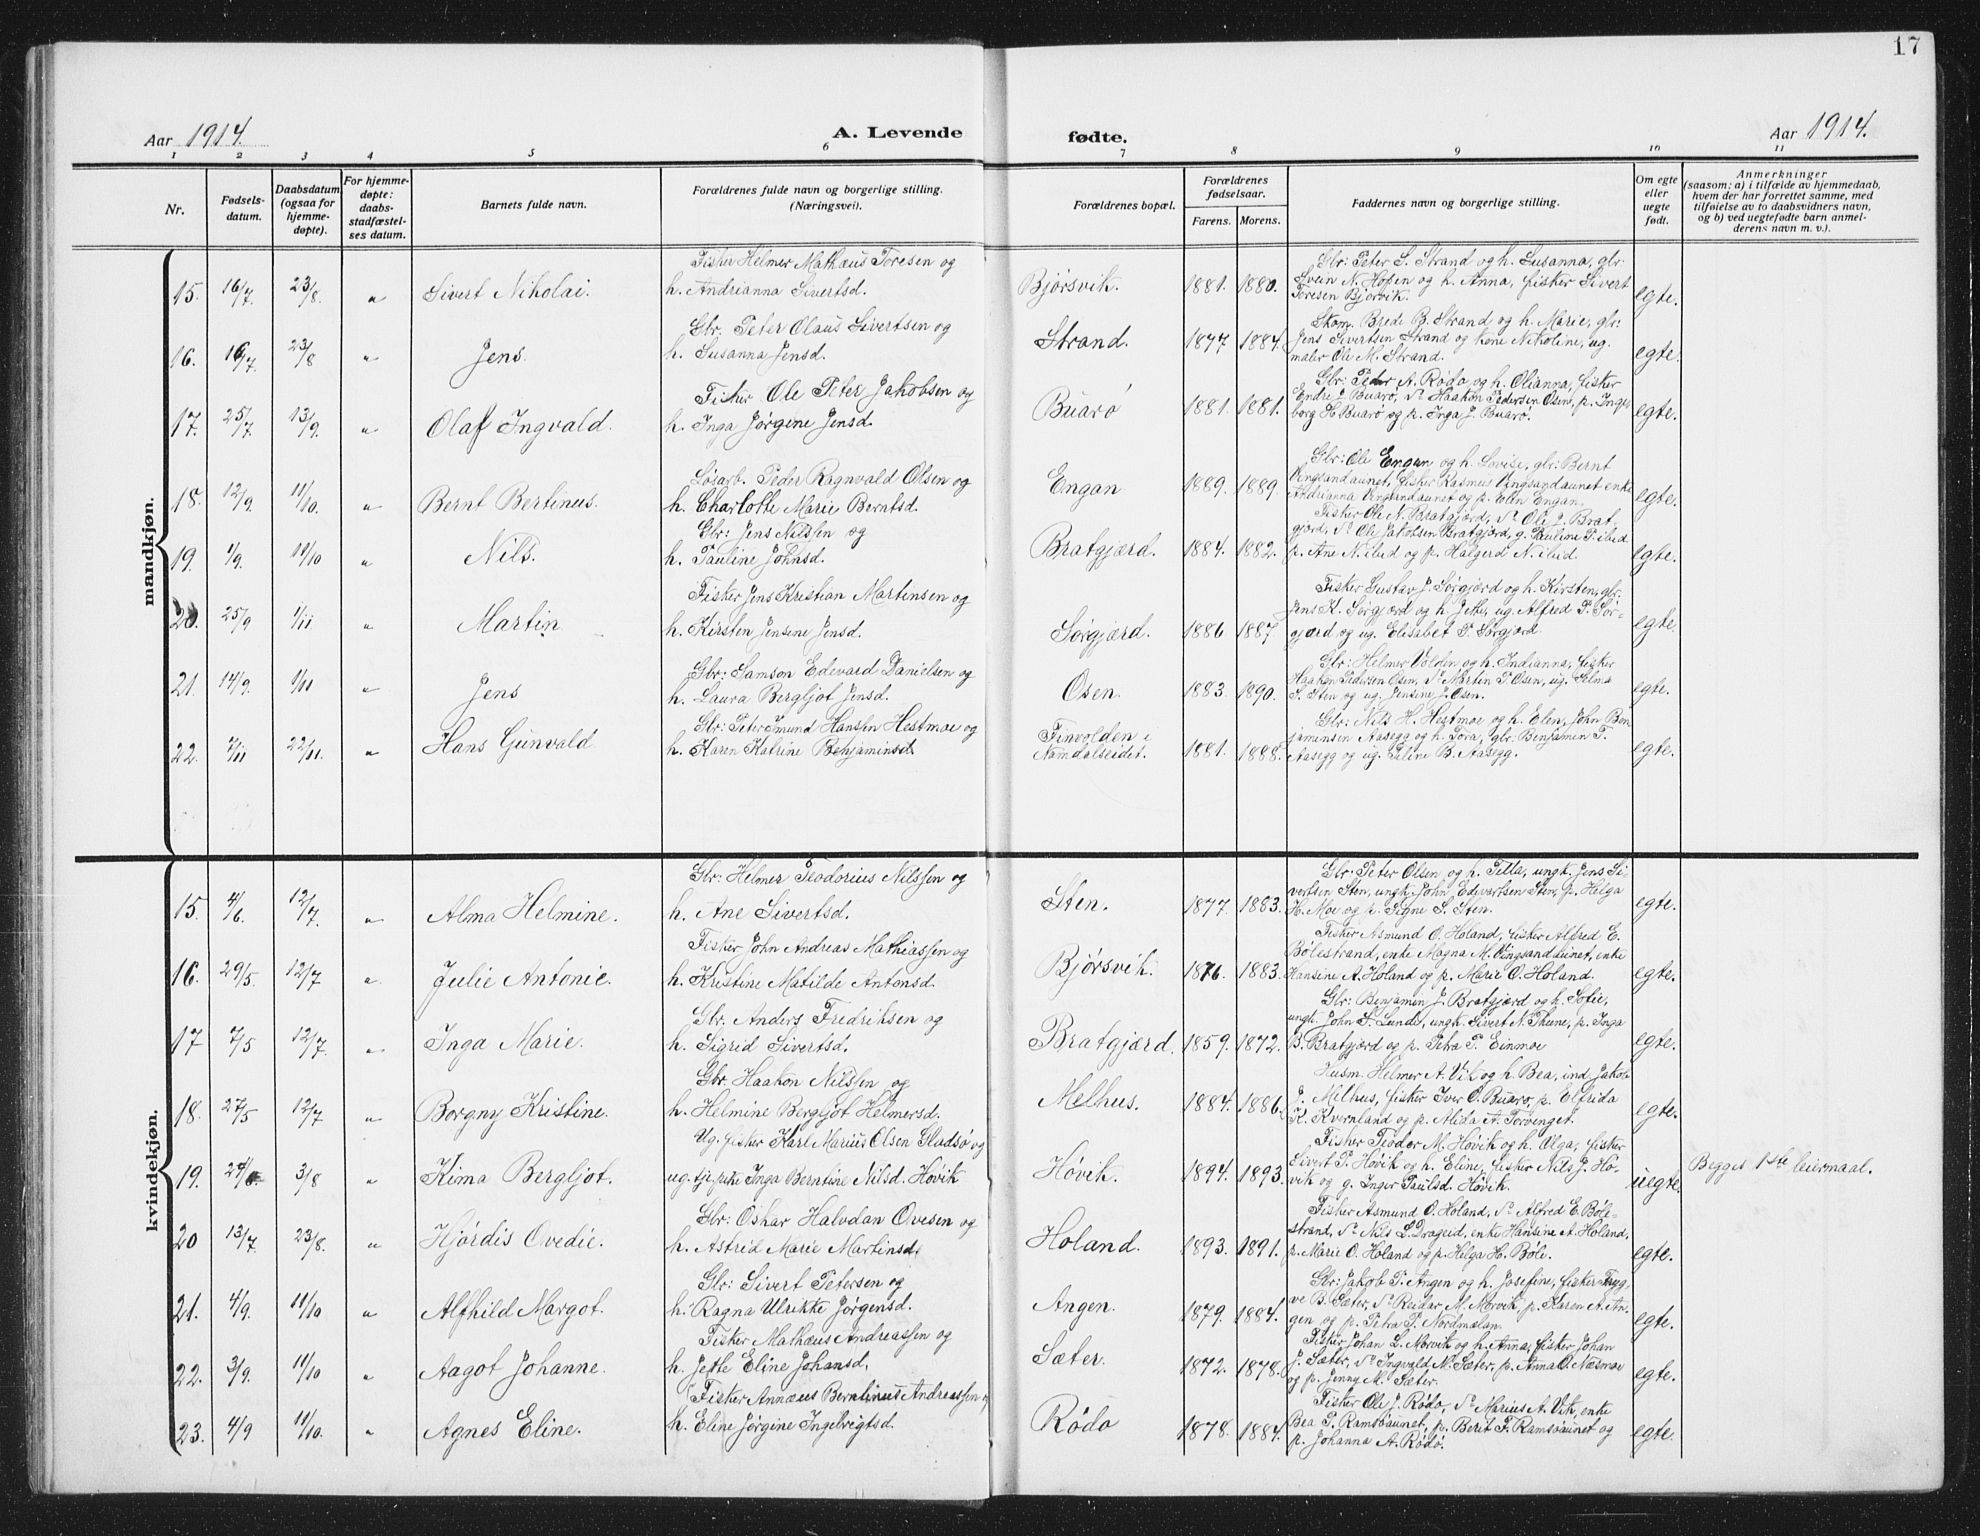 17
Aar 1914. A. Levende fødte. Aar 1914.
1 2 3 4 5 6 7 8 9 10 11
Nr.
Fødsels-
datum.
Daabsdatum
(ogsaa for
hjemme-
døpte).
For hjemme-
døpte:
daabs-
stadfæstel-
ses datum.
Barnets fulde navn.
Forældrenes fulde navn og borgerlige stilling.
(Næringsvei).
Forældrenes bopæl.
Forældrenes
fødselsaar.
Farens. Morens.
Faddernes navn og borgerlige stilling.
Om egte
eller
uegte
født.
Anmerkninger
(saasom: a) i tilfælde av hjemmedaab,
hvem der har forrettet samme, med
tilføielse av to daabsvidners navn,
og b) ved uegtefødte barn anmel-
derens navn m. v.).
mandkjøn.
Fisker Helmer Mathæus Toresen og
15. 16/7 23/8. " Sivert Nikolai. h. Andrianna Sivertsd. Bjørsvik. 1881. 1880. egte.
Gbr: Peter S. Strand og h. Susanna, gbr:
Svein N. Hopen og h. Anna, fisker Sivert
Toresen Bjørvik.
Gbr. Peter Olaus Sivertsen og
16. 16/7. 23/8 " Jens. h. Susanna Jensd. Strand. 1877 1884. egte.
Skom. Brede B. Strand og h. Marie, gbr:
Jens Sivertsen Strand og kone Nikoline, ug.
maler Ole M. Strand.
Fisker Ole Peter Jakobsen og
17. 25/7. 13/9. " Olaf Ingvald. h. Inga Jørgine Jensd. Buarø 1881. 1881. egte.
Gbr: Peder A. Rødø og h. Olianna, fisker
Endre J. Buarø, do Haakon Pedersen Osen, p. Inge-
borg H. Buarø og p. Inga J. Buarø.
Løsarb. Peder Ragnvald Olsen og
18. 12/9. 11/10. " Bernt Bertinus. h. Charlotte Marie Berntsd. Engan 1889. 1889. egte.
Gbr: Ole Engan og h. Lovise, gbr: Bernt
Vingsandaunet, fisker Rasmus Vingsandaunet enke
Andrianna Vingsandaunet og p. Elen Engan.
Gbr: Jens Nilssen og
19. 1/9. 11/10 " Nils. h. Pauline Johnsd. Bratgjærd. 1884. 1882. egte.
Fisker Ole N. Bratgjærd, do Ole J. Brat-
gjærd, do Ole Jakobsen Bratgjærd, g. Pauline
p. Ane N. og p. Halgerd N.
Fisker Jens Kristian Martinsen og
20. 25/9 1/11 " Martin h. Kirsten Jensine Jensd. Sørgjærd. 1886 1887 egte.
Fisker Gustav J. Sørgjærd og h. Kirsten, gbr.
Jens K. Sørgjærd og h. Jette, ug. Alfred P. Sør-
gjærd og ug. Elisabet P. Sørgjærd.
Gbr: Samson Edevard Danielsen og
21. 14/9. 1/11 " Jens h. Laura Bergljot Jensd. Osen. 1883. 1890. egte.
Gbr: Helmer Volden og h. Indianna, fisker
Haakon Pedersen Osen, do Martin P. Osen, ug. Selma
S. Sten og ug. Jensine J. Osen.
Gbr: Peter Imund Hansen Hestmoe og
22. 7/11 22/11. " Hans Gunvald. h. Karen Katrine Benjaminsd. Finvolden i Namdalseidet. 1881. 1888. egte.
Gbr: Nils H. Hestmoe og h. Elen, John Ben-
jaminsen Aasegg og h. Tora, gbr: Benjamin P.
Aasegg og ug. Paline B. Aasegg.
kvindekjøn.
Gbr: Helmer Teodorius Nilssen og
15. 4/6. 12/7. " Alma Helmine. h. Ane Sivertsd. Sten. 1877. 1883. egte.
Gbr: Peter Olsen og h. Tilla, ungk. Jens Si-
vertsen Sten, ungk. John Edevartsen Sten, p. Helga
H. Moe og p. Signe S. Sten.
Fisker John Andreas Mathiassen og
16. 29/5. 12/7 " Julie Antonie. h. Kristine Matilde Antonsd. Bjørsvik. 1876. 1883. egte.
Fisker Asmund O. Holand, fisker Alfred E.
Bölestrand, enke Magna M. Vingsandaunet, enke
Hansine A. Holand og p. Marie O. Holand.
Gbr. Anders Fredriksen og
17 7/5 12/7. " Inga Marie. h. Sigrid Sivertsd. Bratgjærd. 1859. 1872. egte.
Gbr: Benjamin J. Bratgjærd og h. Sofie,
ungk. John S. Lund, ungk. Sivert N. Thune, p. Inga
B. Bratgjærd og p. Petra P. Einmoe
Gbr. Haakon Nilssen og
18. 27/5 12/7 " Borgny Kristine. h. Helmine Bergljot Helmersd. Melhus. 1884. 1886. egte.
Husm. Helmer A. Vik og h. Bea, ind. Jakob
J. Melhus, fisker Iver O. Buarø, p. Elfrida
K. Kvernland og p. Alida A. Torvenget.
Ug. fisker Karl Marius Olsen Gladsø og
19. 24/6. 3/8 " Kima Bergljot. ug. tj. pike Inga Berntine Nilsd. Høvik Høvik. 1894. 1893. uegte. Begges 1ste leiermaal.
Fisker Teodor M. Høvik og h. Olga, fisker
Sivert P. Høvik og h. Eline, fisker Nils J. Hø-
vik og g. Inger Paulsd. Høvik.
Gbr: Oskar Halvdan Ovesen og
20 13/7 23/8. " Hjørdis Ovedie. h. Astrid Marie Martinsd. Holand. 1893. 1891. egte.
Fisker Asmund O. Holand, do Alfred E. Böle-
strand, do Nils L. Drageid, enke Hansine A. Holand,
p. Marie O. Holand og p. Helga H. Böle.
Gbr: Sivert Petersen og
21. 4/9. 11/10 " Alfhild Margot. h. Ragna Ulrikke Jørgensd. Angen. 1879. 1884. egte.
Gbr: Jakob P. Angen og h. Josefine, fisker Tryg-
ve B. Sæter, do Reidar M. Morvik, p. Karen A. An-
gen og p. Petra P. Nordmælan.
Fisker Mathæus Andreassen og
22. 3/9. 11/10 " Aagot Johanne. h. Jette Eline Johansd. Sæter. 1872. 1878. egte.
Fisker Johan L. Morvik og h. Anna, fisker Johan
J. Sæter, do Ingvald M. Sæter, p. Anna O. Næsmoe
og p. Jenny M. Sæter.
Fisker Annæus Berntinus Andreassen og
23. 4/9 11/10. " Agnes Eline. h. Eline Jørgine Ingebrigtsd. Rødø 1878. 1884. egte.
Fisker Ole J. Rødø, do Marius A. Vik, enke
Bea P. Ramsøaunet, p. Berit F. Ramsøaunet og
p. Johanna A. Rødø.